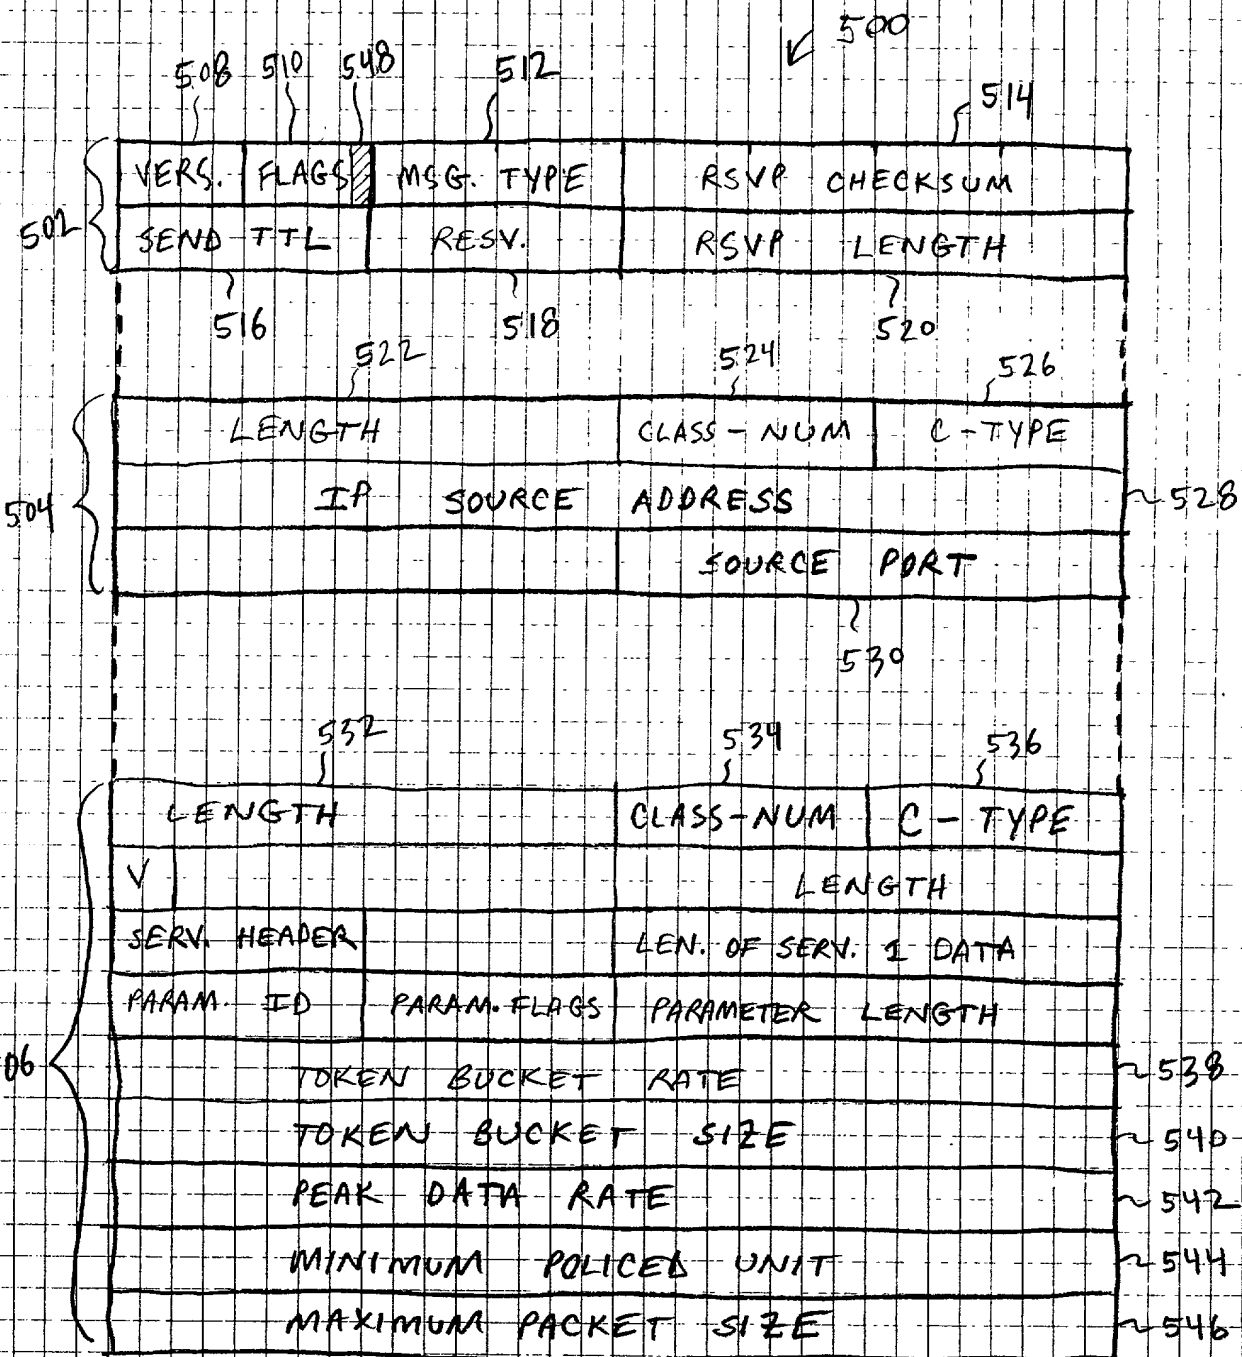 500
508 510 548 512 514
VERS. FLAGS MSG. TYPE RSVP CHECKSUM
502
SEND TTL RESV. RSVP LENGTH
516 518 520
522 524 526
LENGTH CLASS-NUM C-TYPE
504
IP SOURCE ADDRESS 528
SOURCE PORT
530
532 534 536
LENGTH CLASS-NUM C-TYPE
V LENGTH
SERV. HEADER LEN. OF SERV. 1 DATA
PARAM. ID PARAM. FLAGS PARAMETER LENGTH
06
TOKEN BUCKET RATE 538
TOKEN BUCKET SIZE 540
PEAK DATA RATE 542
MINIMUM POLICED UNIT 544
MAXIMUM PACKET SIZE 546